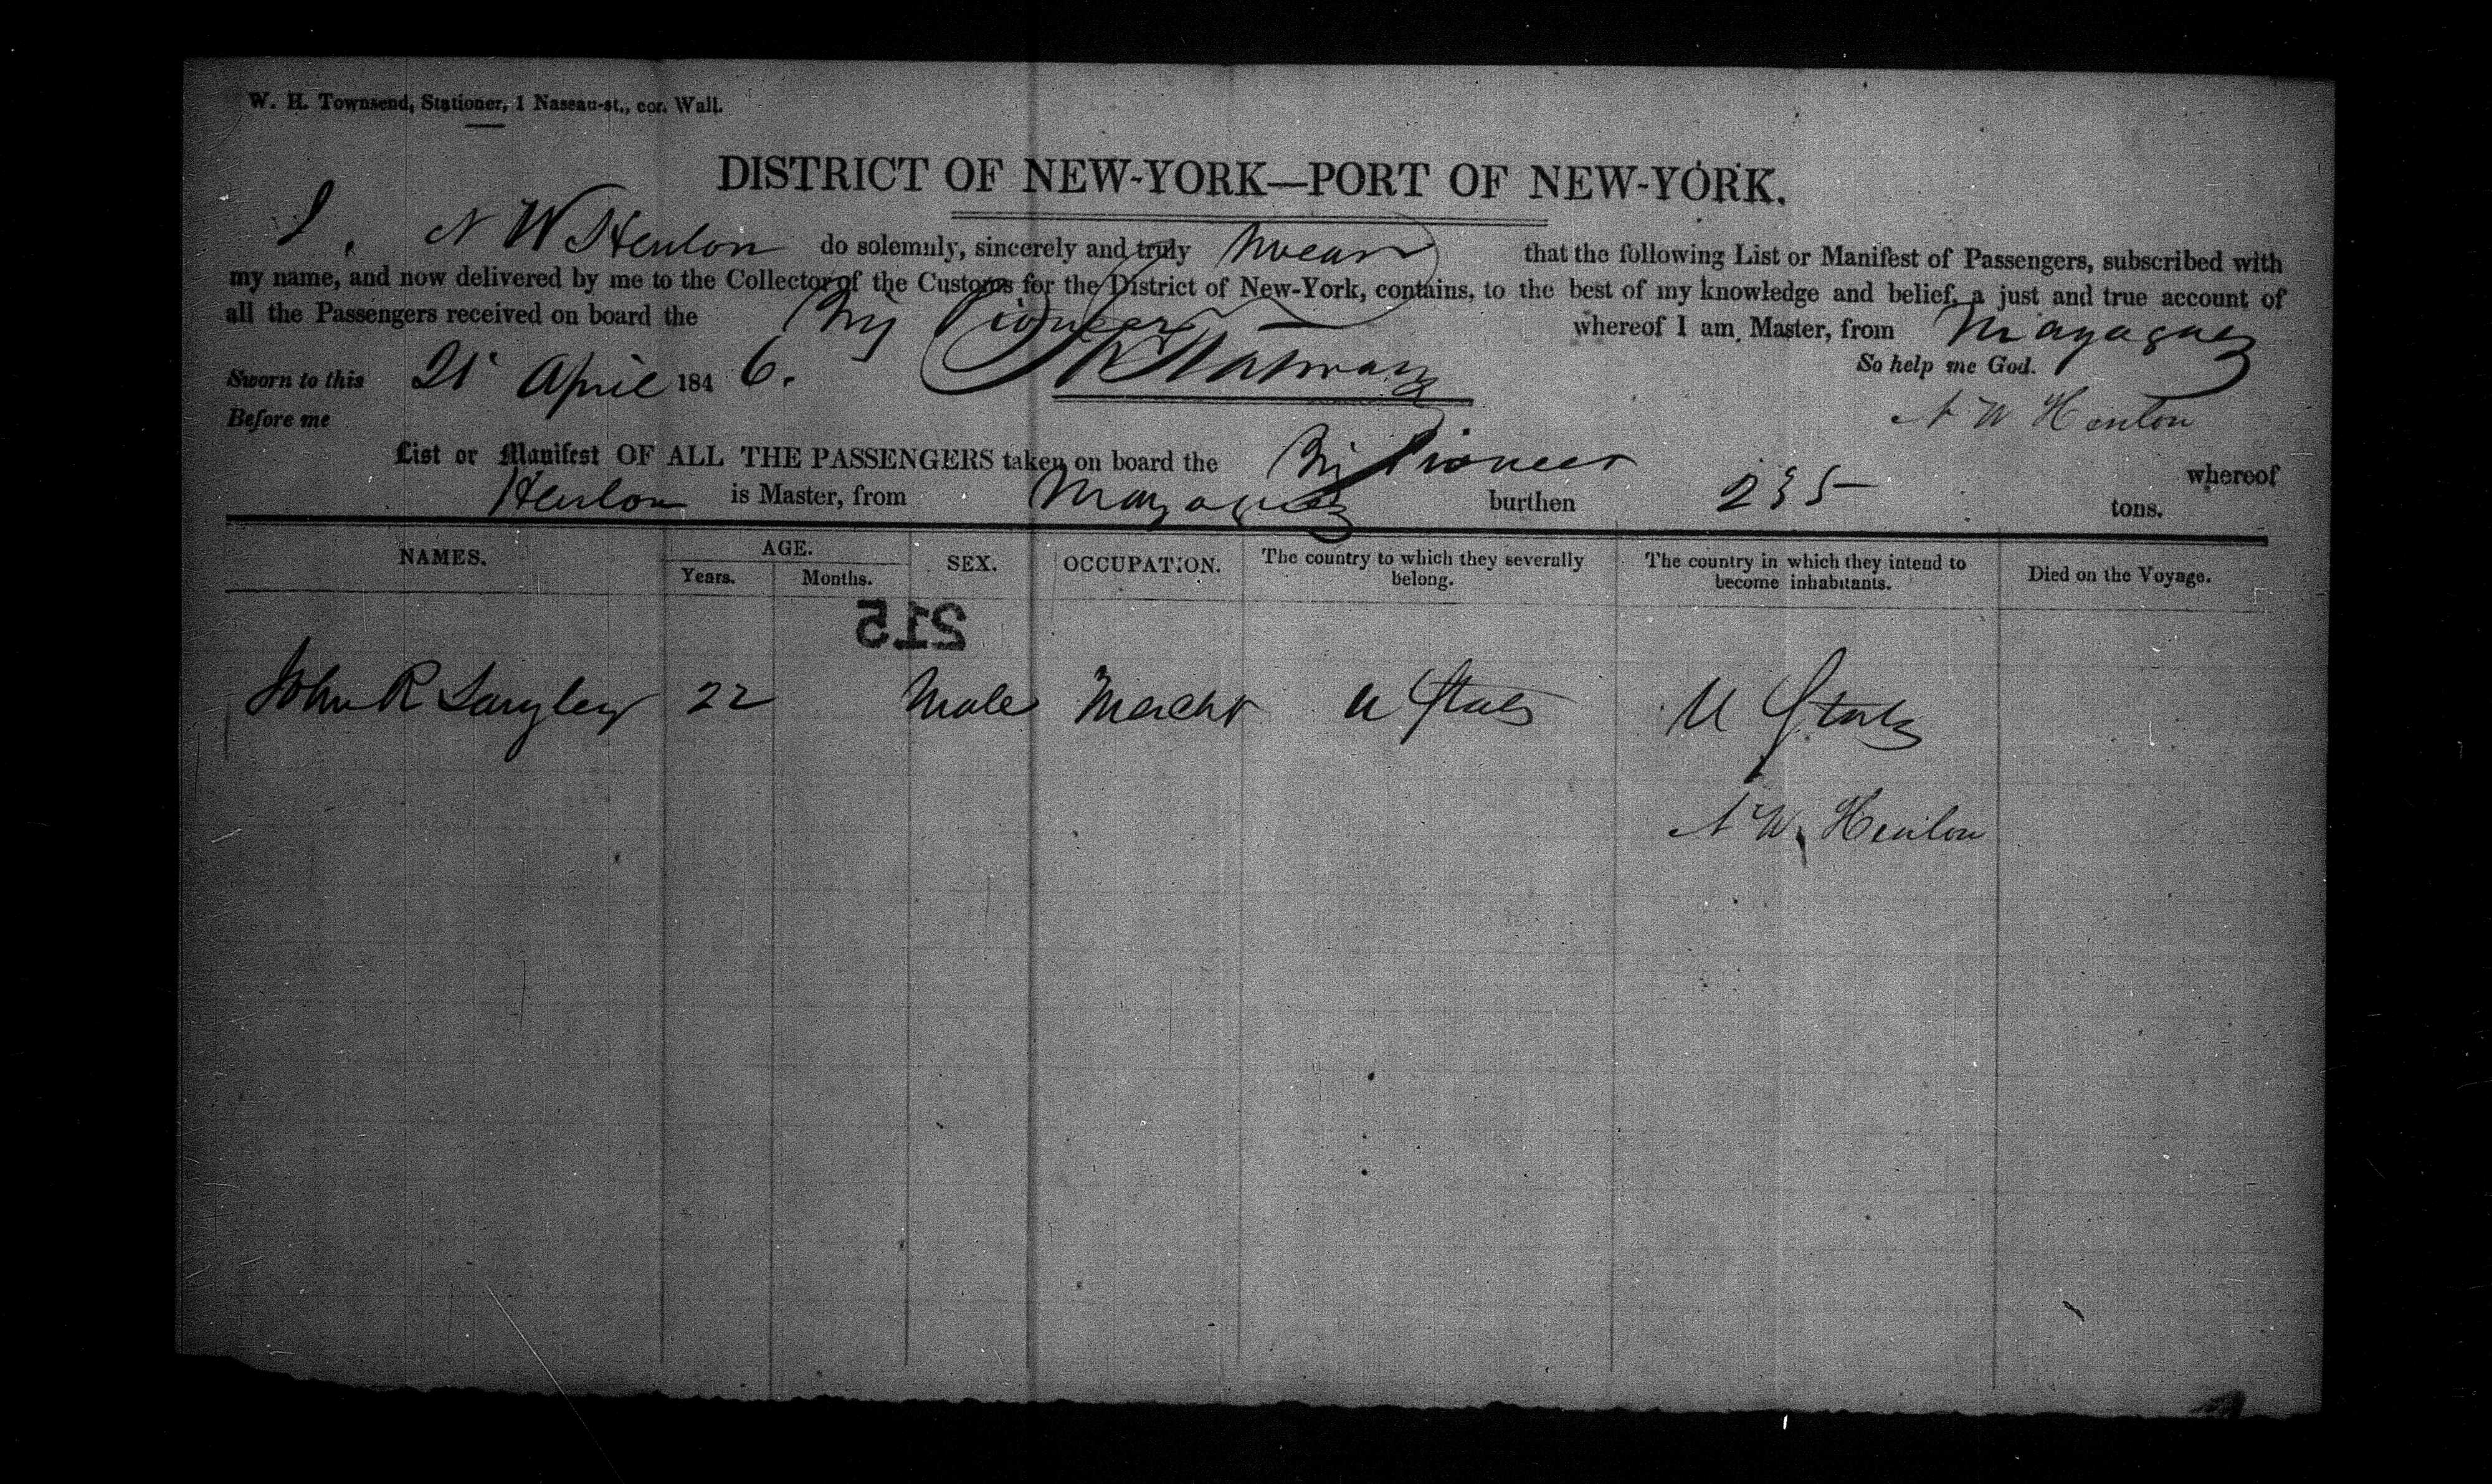 W. H. Townsend, Stationer, 1 Nassau-st., cor. Wall.
DISTRICT OF NEW-YORK—PORT OF NEW-YORK.
I, N W Henlon do solemnly, sincerely and truly swear that the following List or Manifest of Passengers, subscribed with
my name, and now delivered by me to the Collector of the Customs for the District of New-York, contains, to the best of my knowledge and belief, a just and true account of
all the Passengers received on board the Brig Pioneer whereof I am Master, from Mayaguez
So help me God.
Sworn to this 21 April 1846.
Before me
N W Henlon
List or Manifest OF ALL THE PASSENGERS taken on board the Brig Pioneer whereof
Henlon is Master, from Mayaguez burthen 235 tons.
NAMES. AGE. SEX. OCCUPATION. The country to which they severally belong. The country in which they intend to become inhabitants. Died on the Voyage.
Years. Months.
215
John R Langley 22 Male Mercht U States U States
N W Henlon